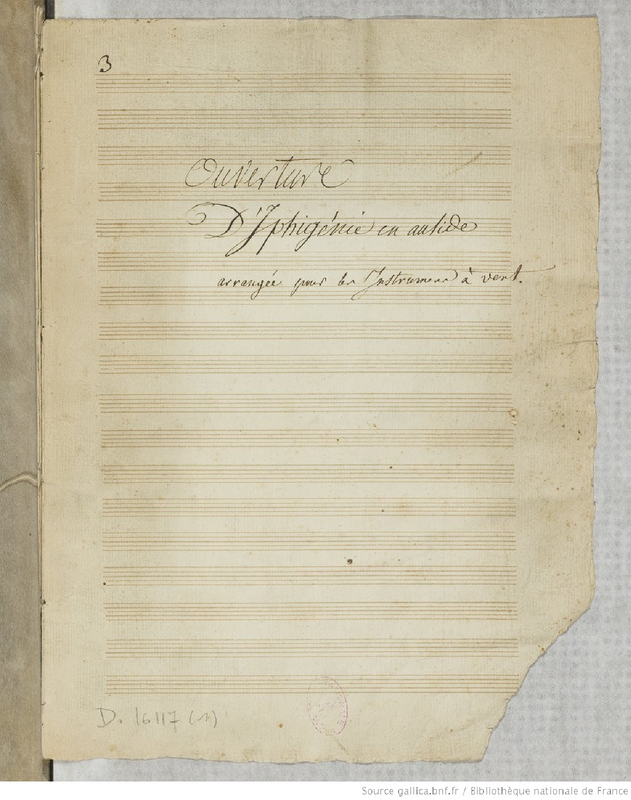 3
Ouverture
D'Iphigénie en aulide
arrangée pour les Instrumens à vent.
D. 16117 (1)
Source gallica.bnf.fr / Bibliothèque nationale de France